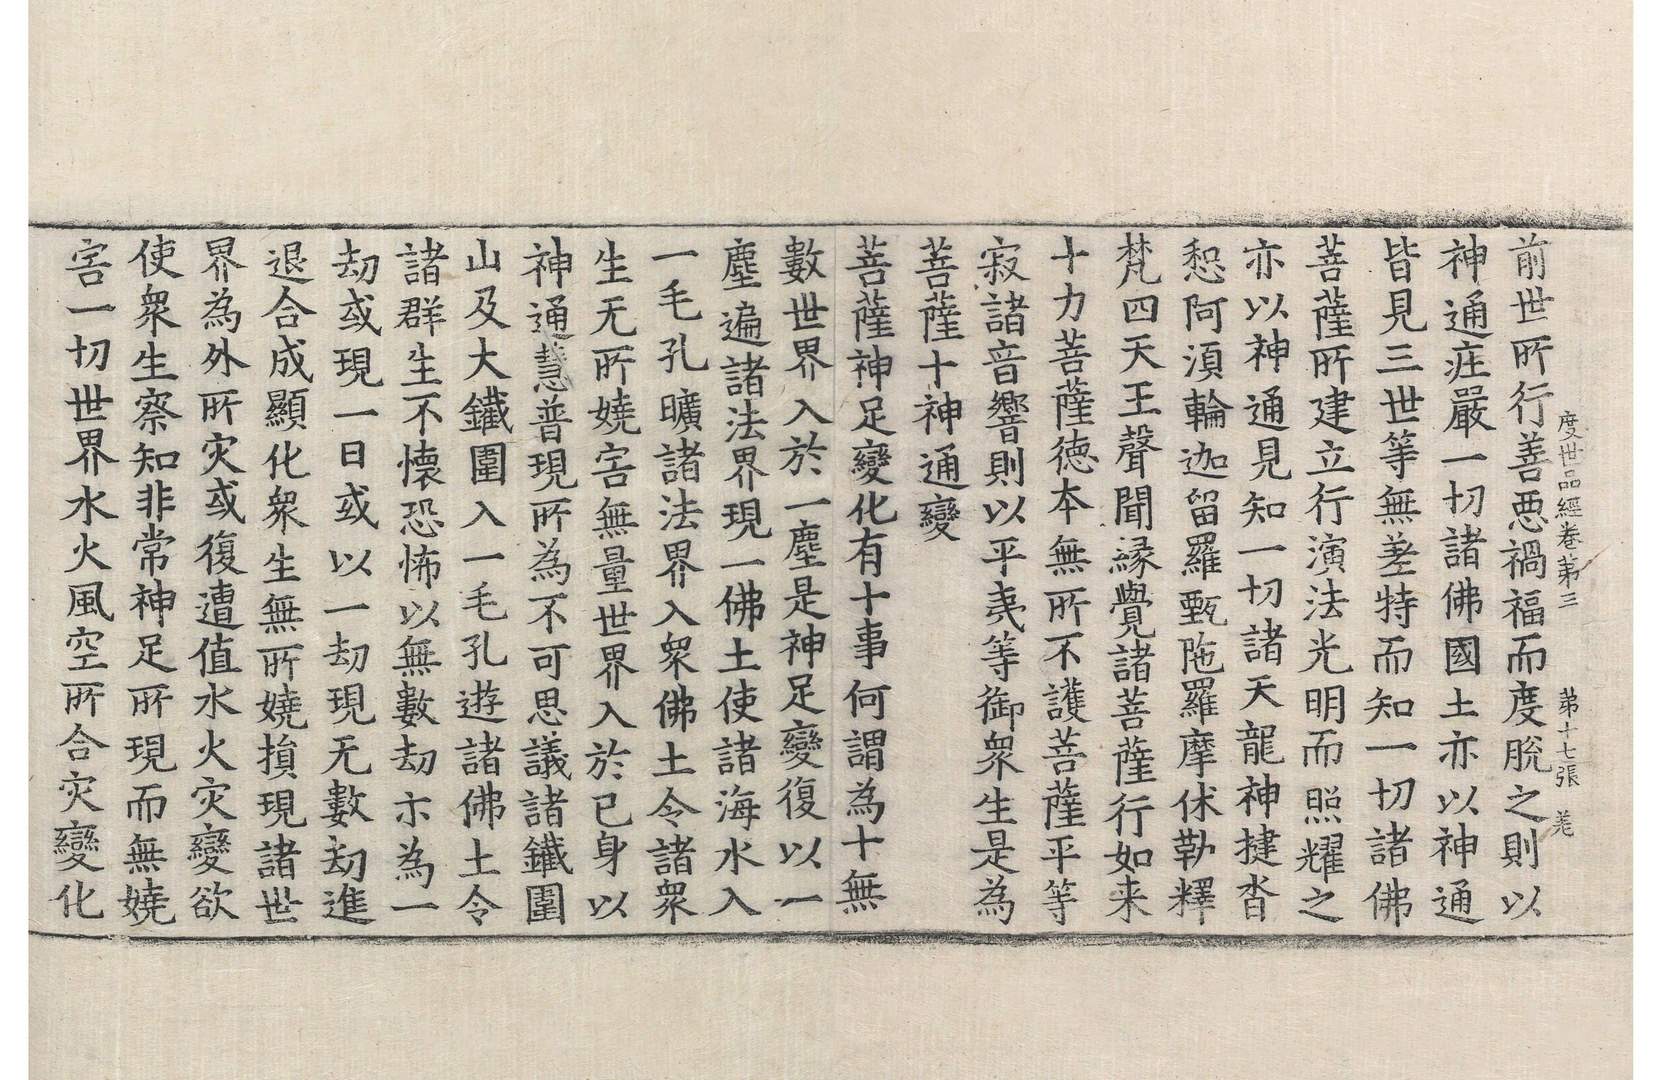 度世品經卷第三　第十七張　羌
前世所行善惡禍福而度脫之則以
神通莊嚴一切諸佛國土亦以神通
皆見三世等無差特而知一切諸佛
菩薩所建立行演法光明而照耀之
亦以神通見知一切諸天龍神揵沓
惒阿須輪迦留羅甄陁羅摩休勒釋
梵四天王聲聞緣覺諸菩薩行如来
十力菩薩德本無所不護菩薩平等
寂諸音響則以平夷等御衆生是為
菩薩十神通變
菩薩神足變化有十事何謂為十無
數世界入於一塵是神足變復以一
塵遍諸法界現一佛土使諸海水入
一毛孔曠諸法界入衆佛土令諸衆
生无所嬈害無量世界入於已身以
神通慧普現所為不可思議諸鐵圍
山及大鐵圍入一毛孔遊諸佛土令
諸群生不懷恐怖以無數劫示為一
劫或現一日或以一劫現无數劫進
退合成顯化衆生無所嬈損現諸世
界為外所灾或復遭值水火灾變欲
使衆生察知非常神足所現而無嬈
害一切世界水火風空所合灾變化